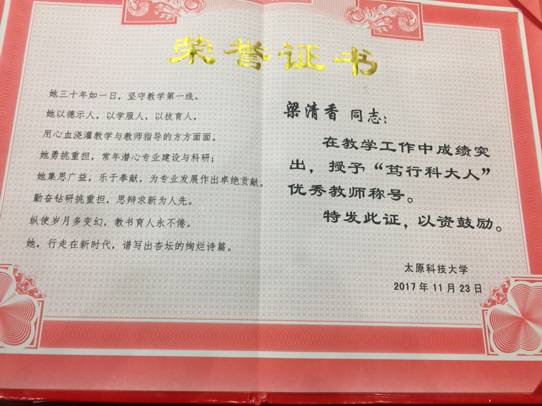 荣誉证书
她三十年如一日，坚守教学第一线。
她以德示人，以学服人，以技育人。
用心血浇灌教学与教师指导的方方面面。
她勇挑重担，常年潜心专业建设与科研；
她集思广益，乐于奉献，为专业发展作出卓绝贡献。
勤奋钻研挑重担，思辩求新为人先。
纵使岁月多变幻，教书育人永不倦。
她，行走在新时代，谱写出杏坛的绚烂诗篇。
梁清香 同志：
在教学工作中成绩突
出，授予“笃行科大人”
优秀教师称号。
特发此证，以资鼓励。
太原科技大学
2017年11月23日